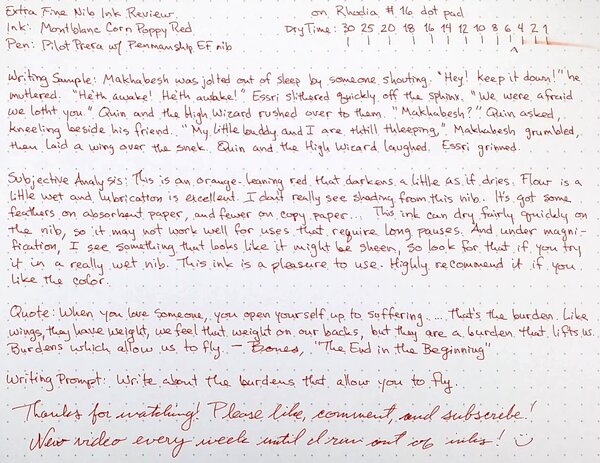 Extra Fine Nib Ink Review
on Rhodia #16 dot pad
Ink: Montblanc Corn Poppy Red
Dry Time: 30 25 20 18 16 14 12 10 8 6 4 2 1
Pen: Pilot Prera w/ Penmanship EF nib
Writing Sample: Makhabesh was jolted out of sleep by someone shouting. "Hey! Keep it down!" he
muttered. "He'th awake! He'th awake!" Essri slithered quickly off the sphinx. "We were afraid
we lotht you." Quin and the High Wizard rushed over to them. "Makhabesh?" Quin asked,
kneeling beside his friend. "My little buddy and I are thtill thleeping," Makhabesh grumbled,
then laid a wing over the snek. Quin and the High Wizard laughed. Essri grinned.
Subjective Analysis: This is an orange-leaning red that darkens a little as it dries. Flow is a
little wet and lubrication is excellent. I don't really see shading from this nib. It's got some
feathers on absorbent paper, and fewer on copy paper... This ink can dry fairly quickly on
the nib, so it may not work well for uses that require long pauses. And under magni-
fication, I see something that looks like it might be sheen, so look for that if you try
it in a really wet nib. This ink is a pleasure to use. Highly recommend it if you
like the color.
Quote: When you love someone, you open yourself up to suffering..... That's the burden. Like
wings, they have weight, we feel that weight on our backs, but they are a burden that lifts us.
Burdens which allow us to fly. - Bones, "The End in the Beginning"
Writing Prompt: Write about the burdens that allow you to fly.
Thanks for watching! Please like, comment, and subscribe!
New video every week until I run out of inks! :)